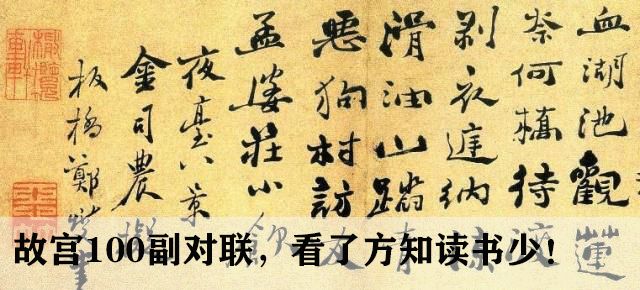 血湖池觀蓮
奈何橋待
剥衣亭納凉
滑油山踏青
惡狗村訪友
孟婆莊小飲
夜臺八景
金司農擬
板橋鄭燮
故宫100副对联，看了方知读书少！